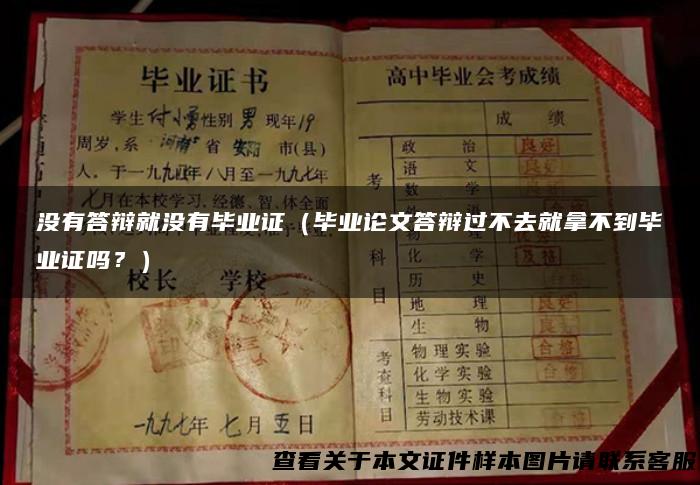 毕业证书
学生付小勇性别男 现年19
周岁,系 河南省 安阳 市(县)
人。于一九九四年八月至一九九七年
七月在本校学习,经德、智、体全面
没有答辩就没有毕业证(毕业论文答辩过不去就拿不到毕
业证吗?)
校长 学校
一九九七年 七月 五日
高中毕业会考成绩
成 绩
考
科
目
政 治 良好
语 文 良好
数 学
化 学 及格
历 史
地 理 良好
生 物 良好
考查科目
物理实验 合格
化学实验 合格
生物实验
劳动技术课 合格
查看关于本文证件样本图片请联系客服